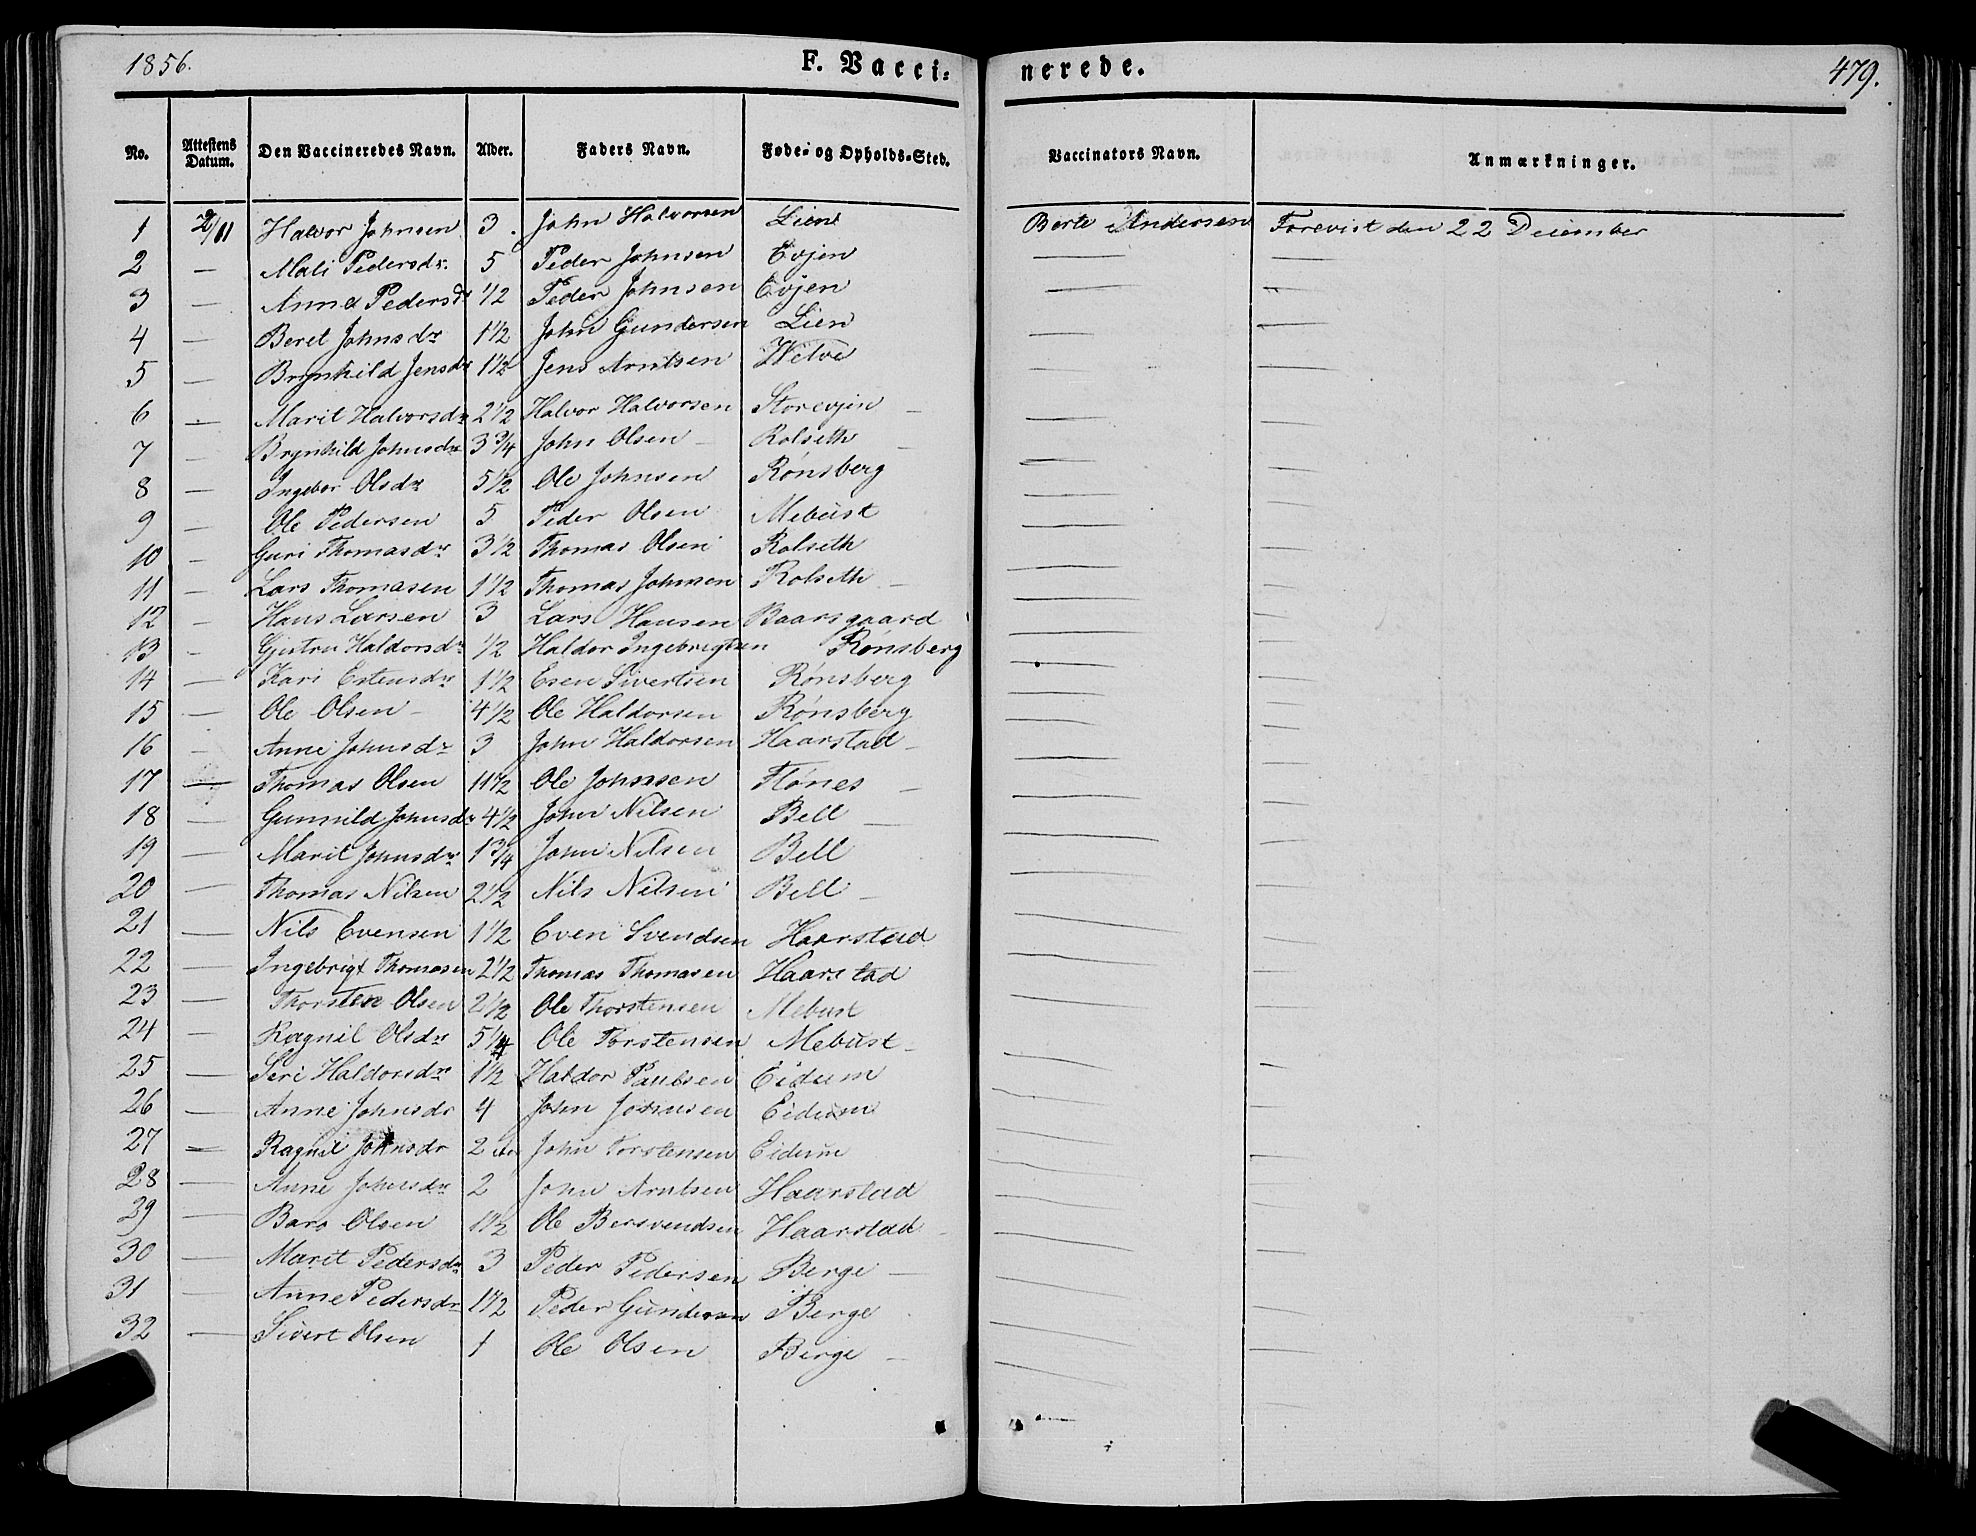 1856.
F. Vacci-
nerede.
479.
No. Attestens Datum. Den Vaccineredes Navn. Alder. Faders Navn. Føde- og Opholds-Sted. Vaccinators Navn. Anmærkninger.
1 2/11 Halvor Johnsen 3. John Halvorsen Lien Andersen Forevist den 22 December
2 — Mali Pedersdr. 5 Peder Johnsen Evjen — —
3 — Anne Pedersdr 1/2 Peder Johnsen Evjen — —
4 — Beret Johnsdr 1 1/2 John Gundersen Lien — —
5 — Brynhild Jensdr 1 1/2 Jens Arntsen — —
6 — Marit Halvorsdr 2 1/2 Halvor Halvorsen Storevjen — — —
7 — Brynhild Johnsdr 3 3/4 John Olsen — Rolseth — — —
8 — Ingebor Olsdr 5 1/2 Ole Johnsen Rønsberg — —
9 — Ole Pedersen 5 Peder Olsen Mebust — —
10 — Guri Thomasdr 3 1/2 Thomas Olsen Rolseth — —
11 — Lars Thomasen 1 1/2 Thomas Johnsen Rolseth — — —
12 — Hans Larsen 3 Lars Hansen Baarsgaard — —
13 — Haldorsdr 1/2 Haldor Ingebrigtsen Rønsberg — —
14 — Kari Estensdr 1 1/2 Esen Sivertsen Rønsberg — —
15 — Ole Olsen — 4 1/2 Ole Haldorsen Rønsberg — —
16 — Anne Johnsdr 3 John Haldorsen Haarstad — — —
17 — Thomas Olsen 11 1/2 Ole Johnsen Flønes — — —
18 — Gunnild Johnsdr 4 1/2 John Nilsen Bell — — —
19 — Marit Johnsdr 1 3/4 John Nilsen Bell — —
20 — Thomas Nilsen 2 1/2 Nils Nilsen Bell — — —
21 — Nils Evensen 1 1/2 Even Svendsen Haarstad — —
22 — Ingebrigt Thomasen 2 1/2 Thomas Thomasen Haarstad — —
23 — Thorsten Olsen 2 1/2 Ole Thorstensen Mebust — —
24 — Ragnil Olsdr 5 1/4 Ole Torstensen Mebust — — —
25 — Seri Haldorsdr 1 1/2 Haldor Paulsen Eidum — —
26 — Anne Johnsdr 4 John Johnsen Eidum — —
27 — Ragnil Johnsdr 2 John Torstensen Eidum — —
28 — Anne Johnsdr 2 John Arntsen Haarstad — —
29 — Bars Olsen 1 1/2 Ole Bersvendsen Haarstad — — —
30 — Marit Pedersdr 3 Peder Pedersen Berge — — —
31 — Anne Pedersdr 1 1/2 Peder Gundersen Berge — —
32 — Sivert Olsen 1 Ole Olsen Berge — — —